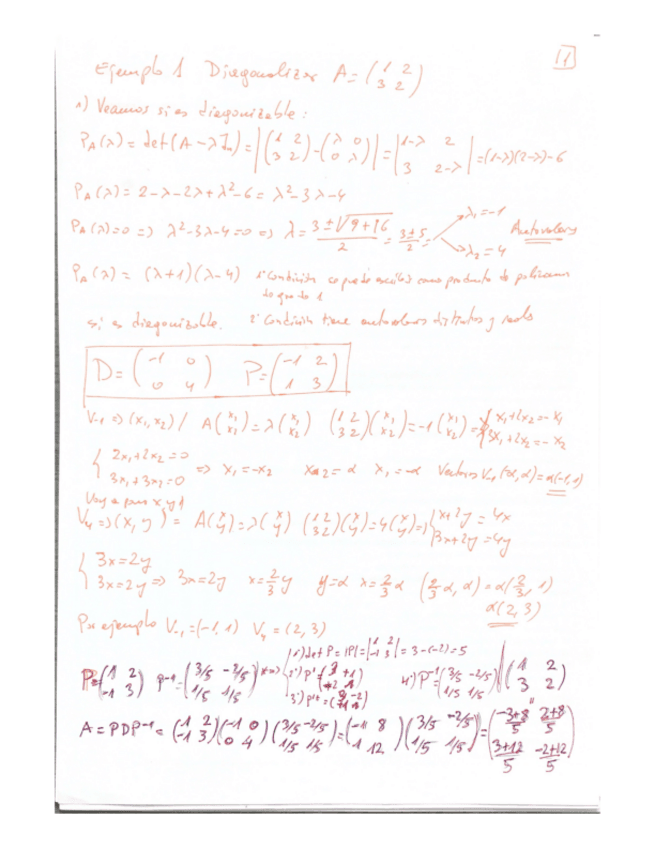 11
Ejemplo 1 Diagonalizar A = (1 2; 3 2)
1) Veamos si es diagonizable:
P_A(λ) = det(A - λI_n) = |(1 2; 3 2) - (λ 0; 0 λ)| = |1-λ 2; 3 2-λ| = (1-λ)(2-λ) - 6
P_A(λ) = 2 - λ - 2λ + λ² - 6 = λ² - 3λ - 4
P_A(λ) = 0 => λ² - 3λ - 4 = 0 => λ = (3 ± √(9+16))/2 = (3±5)/2 = λ₁ = -1 λ₂ = 4 Autovalores
P_A(λ) = (λ+1)(λ-4) 1ª Condición se puede escribir como producto de polinomios
de grado 1
si es diagonizable. 2ª Condición tiene autovalores distintos y reales
D = (-1 0; 0 4) P = (-1 2; 1 3)
V₋₁ => (x₁, x₂) / A(x₁; x₂) = λ(x₁; x₂) (1 2; 3 2)(x₁; x₂) = -1(x₁; x₂) => { x₁+2x₂ = -x₁; 3x₁+2x₂ = -x₂
{ 2x₁+2x₂ = 0; 3x₁+3x₂ = 0 => x₁ = -x₂ x₂ = α x₁ = -α Vectores V₋₁ (-α, α) = α(-1, 1)
V₄ => (x, y) = A(x; y) = λ(x; y) (1 2; 3 2)(x; y) = 4(x; y) => { x+2y = 4x; 3x+2y = 4y
{ 3x = 2y; 3x = 2y => 3x = 2y x = 2/3 y y = α x = 2/3 α (2/3 α, α) = α(2/3, 1)
α(2, 3)
Por ejemplo V₋₁ = (-1, 1) V₄ = (2, 3)
P = (1 2; -1 3) P⁻¹ = (3/5 -2/5; 1/5 1/5) => { 1º) det P = |P| = |1 2; -1 3| = 3-(-2) = 5
4º) P⁻¹ (3/5 -2/5; 1/5 1/5) (1 2; 3 2)
A = PDP⁻¹ = (1 2; -1 3)(-1 0; 0 4)(3/5 -2/5; 1/5 1/5) = (-1 8; 1 12)(3/5 -2/5; 1/5 1/5) = ((-3+8)/5 (2+8)/5; (3+12)/5 (-2+12)/5)